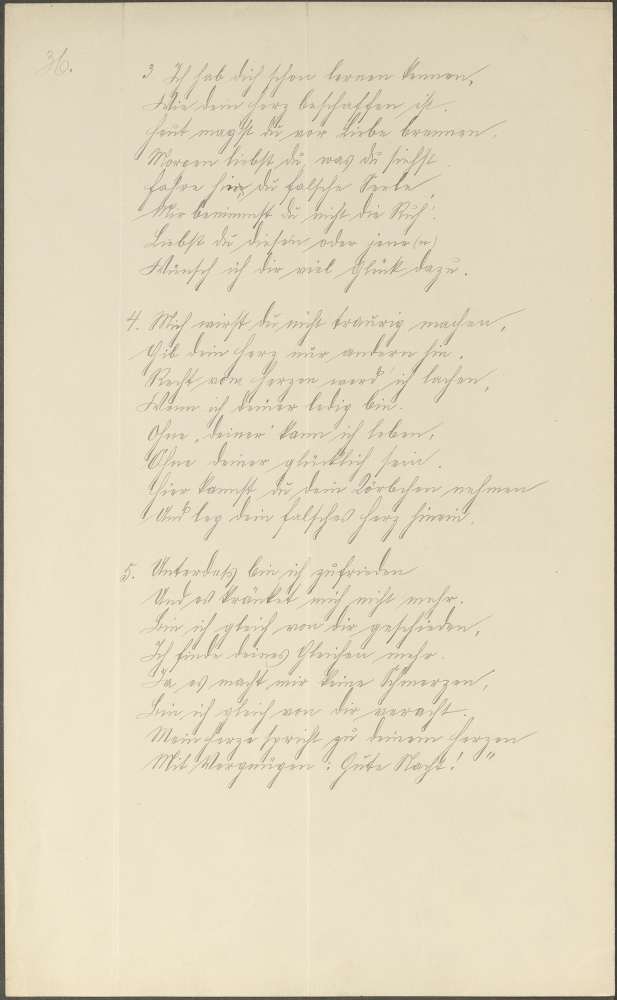 36.
3 Ich hab dich schon lernen kennen,
Wie dein Herz beschaffen ist.
Heut magst du vor Liebe brennen.
Morgen liebst du, was du siehst.
Fahre hin, du falsche Seele,
Mir benimmst du nicht die Ruh'.
Liebst du diesen oder jene(n)
Wünsch ich dir viel Glück dazu.
4. Mich wirst du nicht traurig machen,
Gib dein Herz nur andern hin.
Recht vom Herzen werd' ich lachen,
Wenn ich deiner ledig bin.
Ohne deiner kann ich leben,
Ohne deiner glücklich sein.
Hier kannst du dein Körbchen nehmen
Und leg dein falsches Herz hinein.
5. Unterdeß bin ich zufrieden
Und es kränket mich nicht mehr.
Bin ich gleich von dir geschieden,
Ich finde deines Gleichen mehr.
Ja, es macht mir keine Schmerzen,
Bin ich gleich von dir veracht.
Mein Herze spricht zu deinem Herzen
Mit Vergnügen: Gute Nacht! "